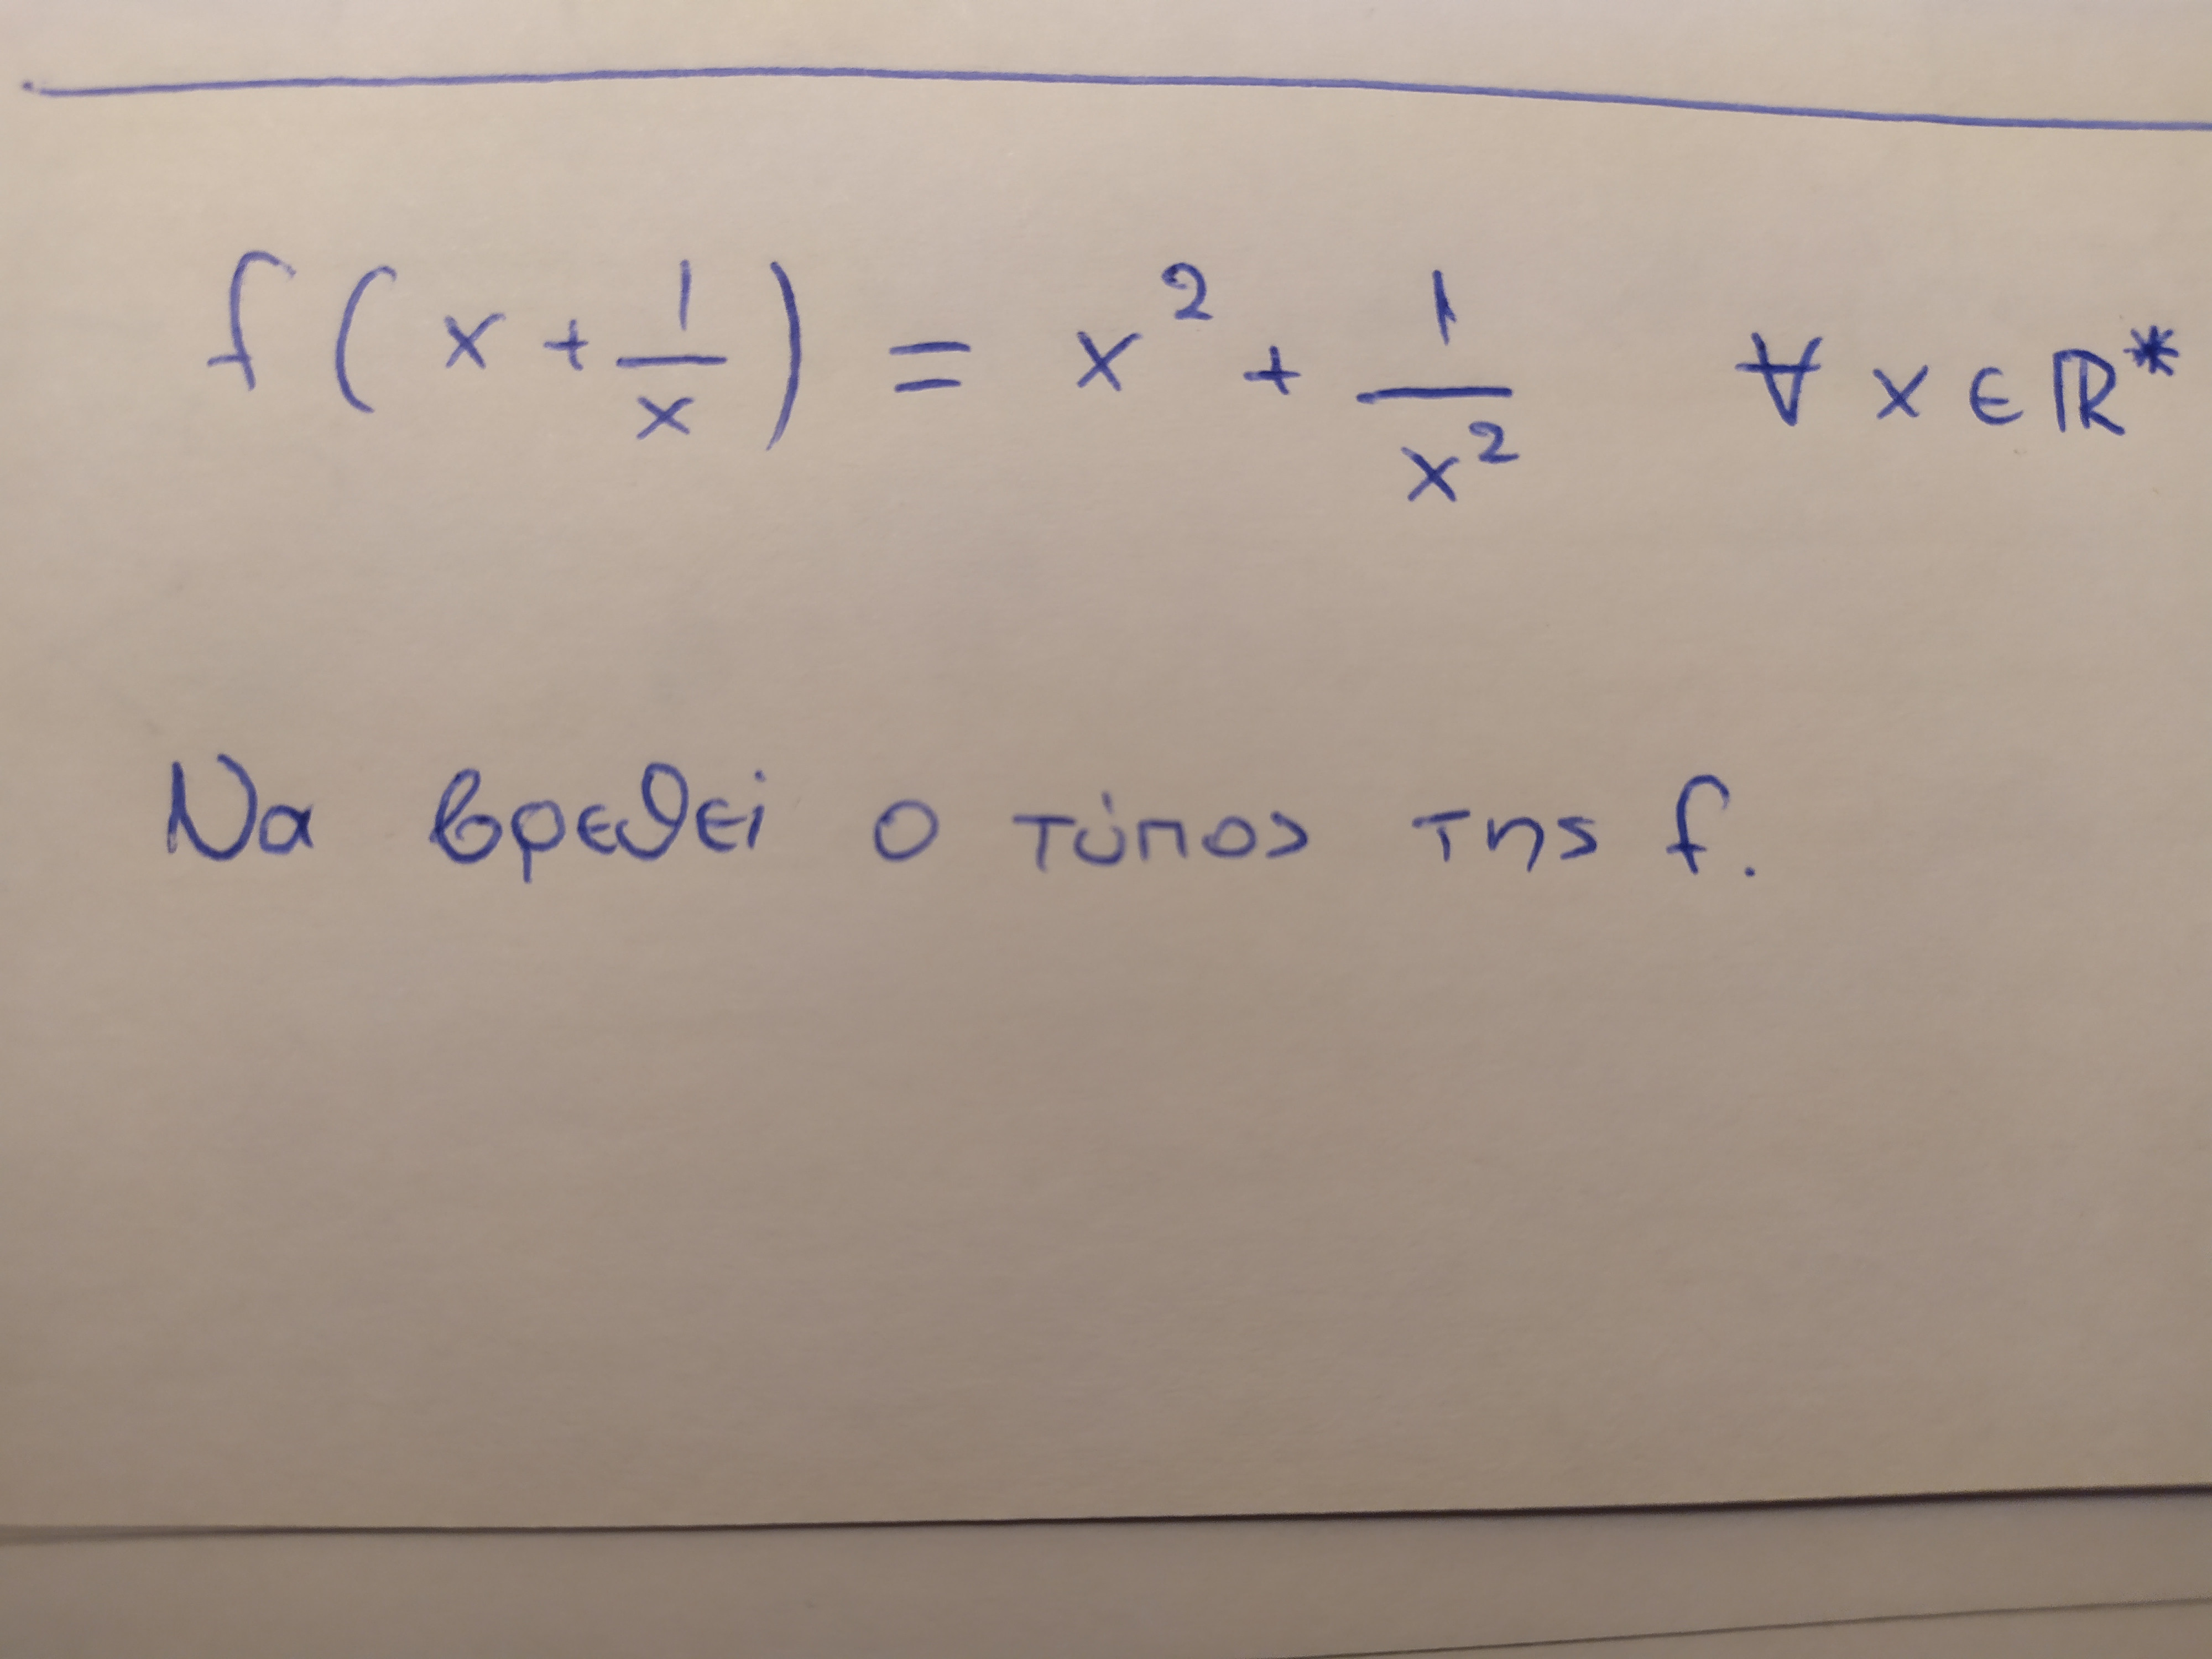 f(x + 1/x) = x² + 1/x² ∀ x ∈ ℝ*
Να βρεθεί ο τύπος της f.